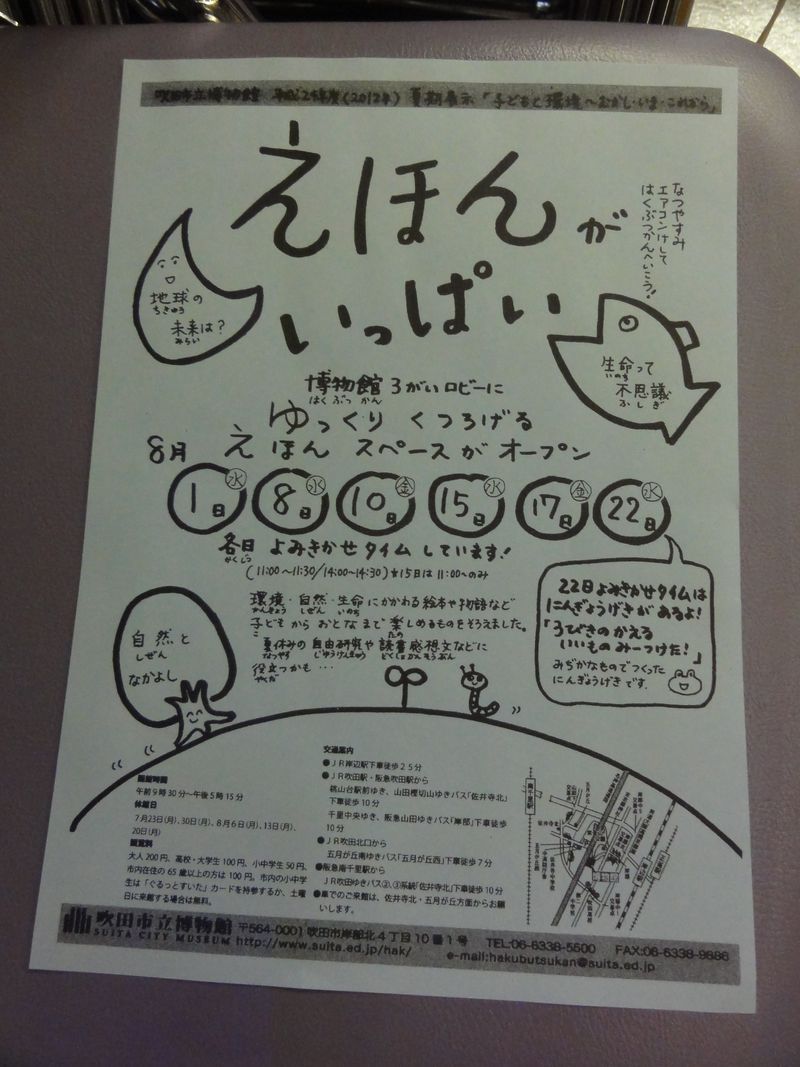 吹田市立博物館 平成24年度(2012年) 夏期展示「子どもと環境〜むかし・いま・これから」
えほんが
いっぱい
なつやすみ
エアコンけして
はくぶつかんへいこう!
地球の
ちきゅう
未来は?
みらい
生命って
いのち
不思議
ふしぎ
博物館 3がいロビーに
はくぶつかん
ゆっくり くつろげる
8月 えほん スペースがオープン
1日 水 8日 水 10日 金 15日 水 17日 金 22日 水
各日 よみきかせタイム しています!
かくじつ
(11:00〜11:30/14:00〜14:30)★15日は11:00〜のみ
環境・自然・生命にかかわる絵本や物語など
かんきょう しぜん いのち
子どもから おとなまで楽しめるものをそろえました。
こ たの
夏休みの自由研究や読書感想文などに
なつやす じゆうけんきゅう どくしょかんそうぶん
役立つかも・・・
やくだ
22日よみきかせタイムは
にんぎょうげきがあるよ!
「3びきのかえる
いいものみーつけた!」
みぢかなものでつくった
にんぎょうげきです.
自然と
しぜん
なかよし
開館時間
午前9時30分〜午後5時15分
休館日
7月23日(月)、30日(月)、8月6日(月)、13日(月)、
20日(月)
観覧料
大人200円、高校・大学生100円、小中学生50円、
市内在住の65歳以上の方は100円。市内の小中学
生は「ぐるっとすいた」カードを持参するか、土曜
日に来館する場合は無料。
交通案内
●JR岸辺駅下車徒歩25分
●JR吹田駅・阪急吹田駅から
桃山台駅前ゆき、山田樫切山ゆきバス「佐井寺北」
下車徒歩10分
千里中央ゆき、阪急山田ゆきバス「岸部」下車徒歩
10分
●JR吹田北口から
五月が丘南ゆきバス「五月が丘西」下車徒歩7分
●阪急南千里駅から
JR吹田ゆきバス②、③系統「佐井寺北」下車徒歩10分
●車でのご来館は、佐井寺北・五月が丘方面からお願
いします。
南千里駅
吹田市立博物館
SUITA CITY MUSEUM
〒564-0001 吹田市岸部北4丁目10番1号 TEL:06-6338-5500 FAX:06-6338-9886
http://www.suita.ed.jp/hak/ e-mail:hakubutsukan@suita.ed.jp